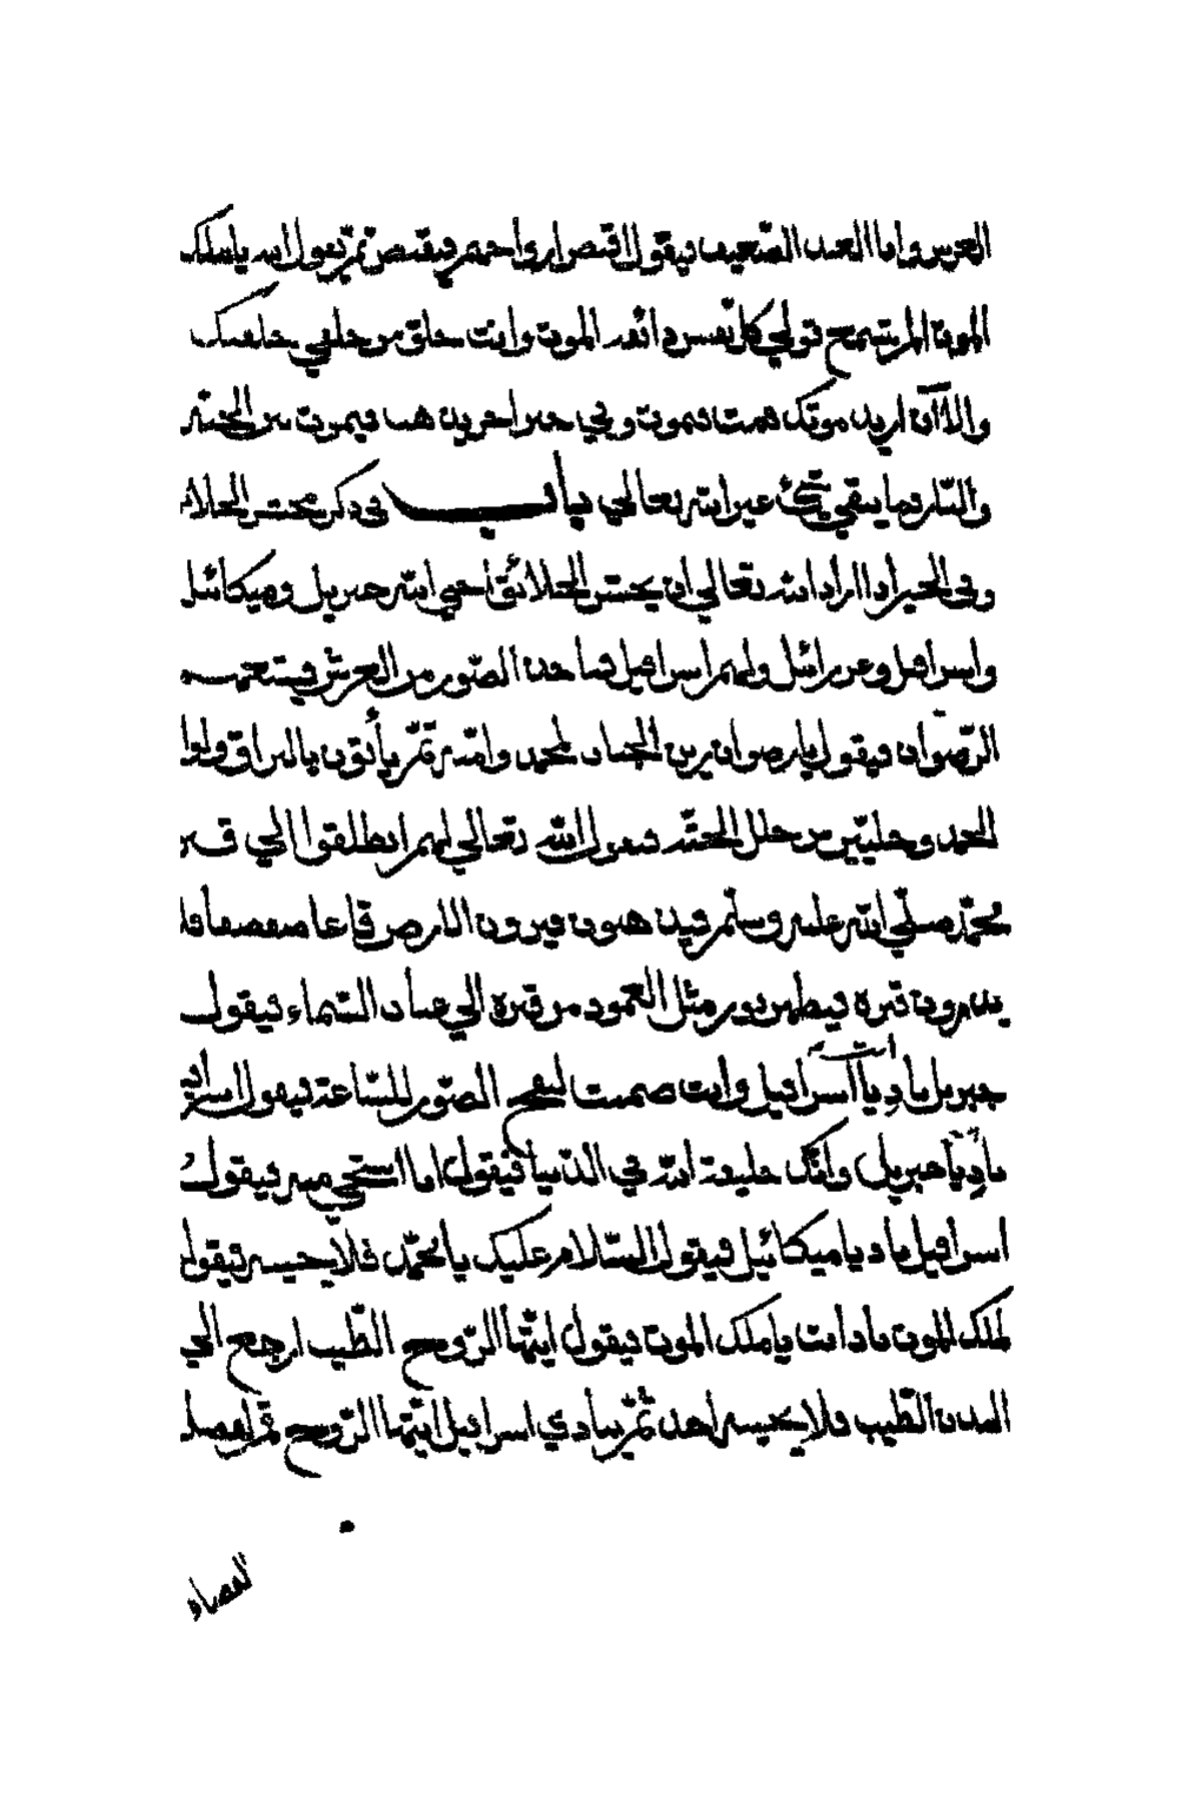 العرش وانا العبد الضعيف فيقول اقبض ارواحهم فيقبض ثم يقول الله يا ملك
الموت الم تسمع قولي كل نفس ذائقة الموت وانت خلق من خلقي خلقتك
والاآن اريد موتك فمت فيموت وفي خبر اخر بين فيموت بين الجنة
والنار وما يبقى شيء غير الله تعالي باب في ذكر حشر الخلائق
وفي الخبر اذا اراد الله تعالي ان يحشر الخلائق احيي الله جبريل وميكائيل
واسرافيل وعزرائيل ولهم اسرافيل فياخذ الصور من العرش فيبعثهم
الرضوان فيقول يا رضوان زين الجنان لمحمد وامته ثم يأتون بالبراق ولواء
الحمد وحلتين من حلل الجنة فيقول الله تعالي لهم انطلقوا الي قبر
محمد صلي الله عليه وسلم فيذهبون فيرون الارض قاعا صفصفا فلا
يدرون قبره فيظهر نور مثل العمود من قبره الي عنان السماء فيقول
جبريل ناد يا اسرافيل وانت صمت لنفخ الصور للساعة فيقول اسرافيل
ناد يا جبريل وانك خليفة الله في الدنيا فيقول انا استحي منه فيقول
اسرافيل ناد يا ميكائيل فيقول السلام عليك يا محمد فلا يجيبه فيقول
لملك الموت ناد انت يا ملك الموت فيقول ايتها الروح الطيب ارجع الي
البدن الطيب فلا يجيبه احد ثم ينادي اسرافيل ايتها الروح قم لفصل
القضاء